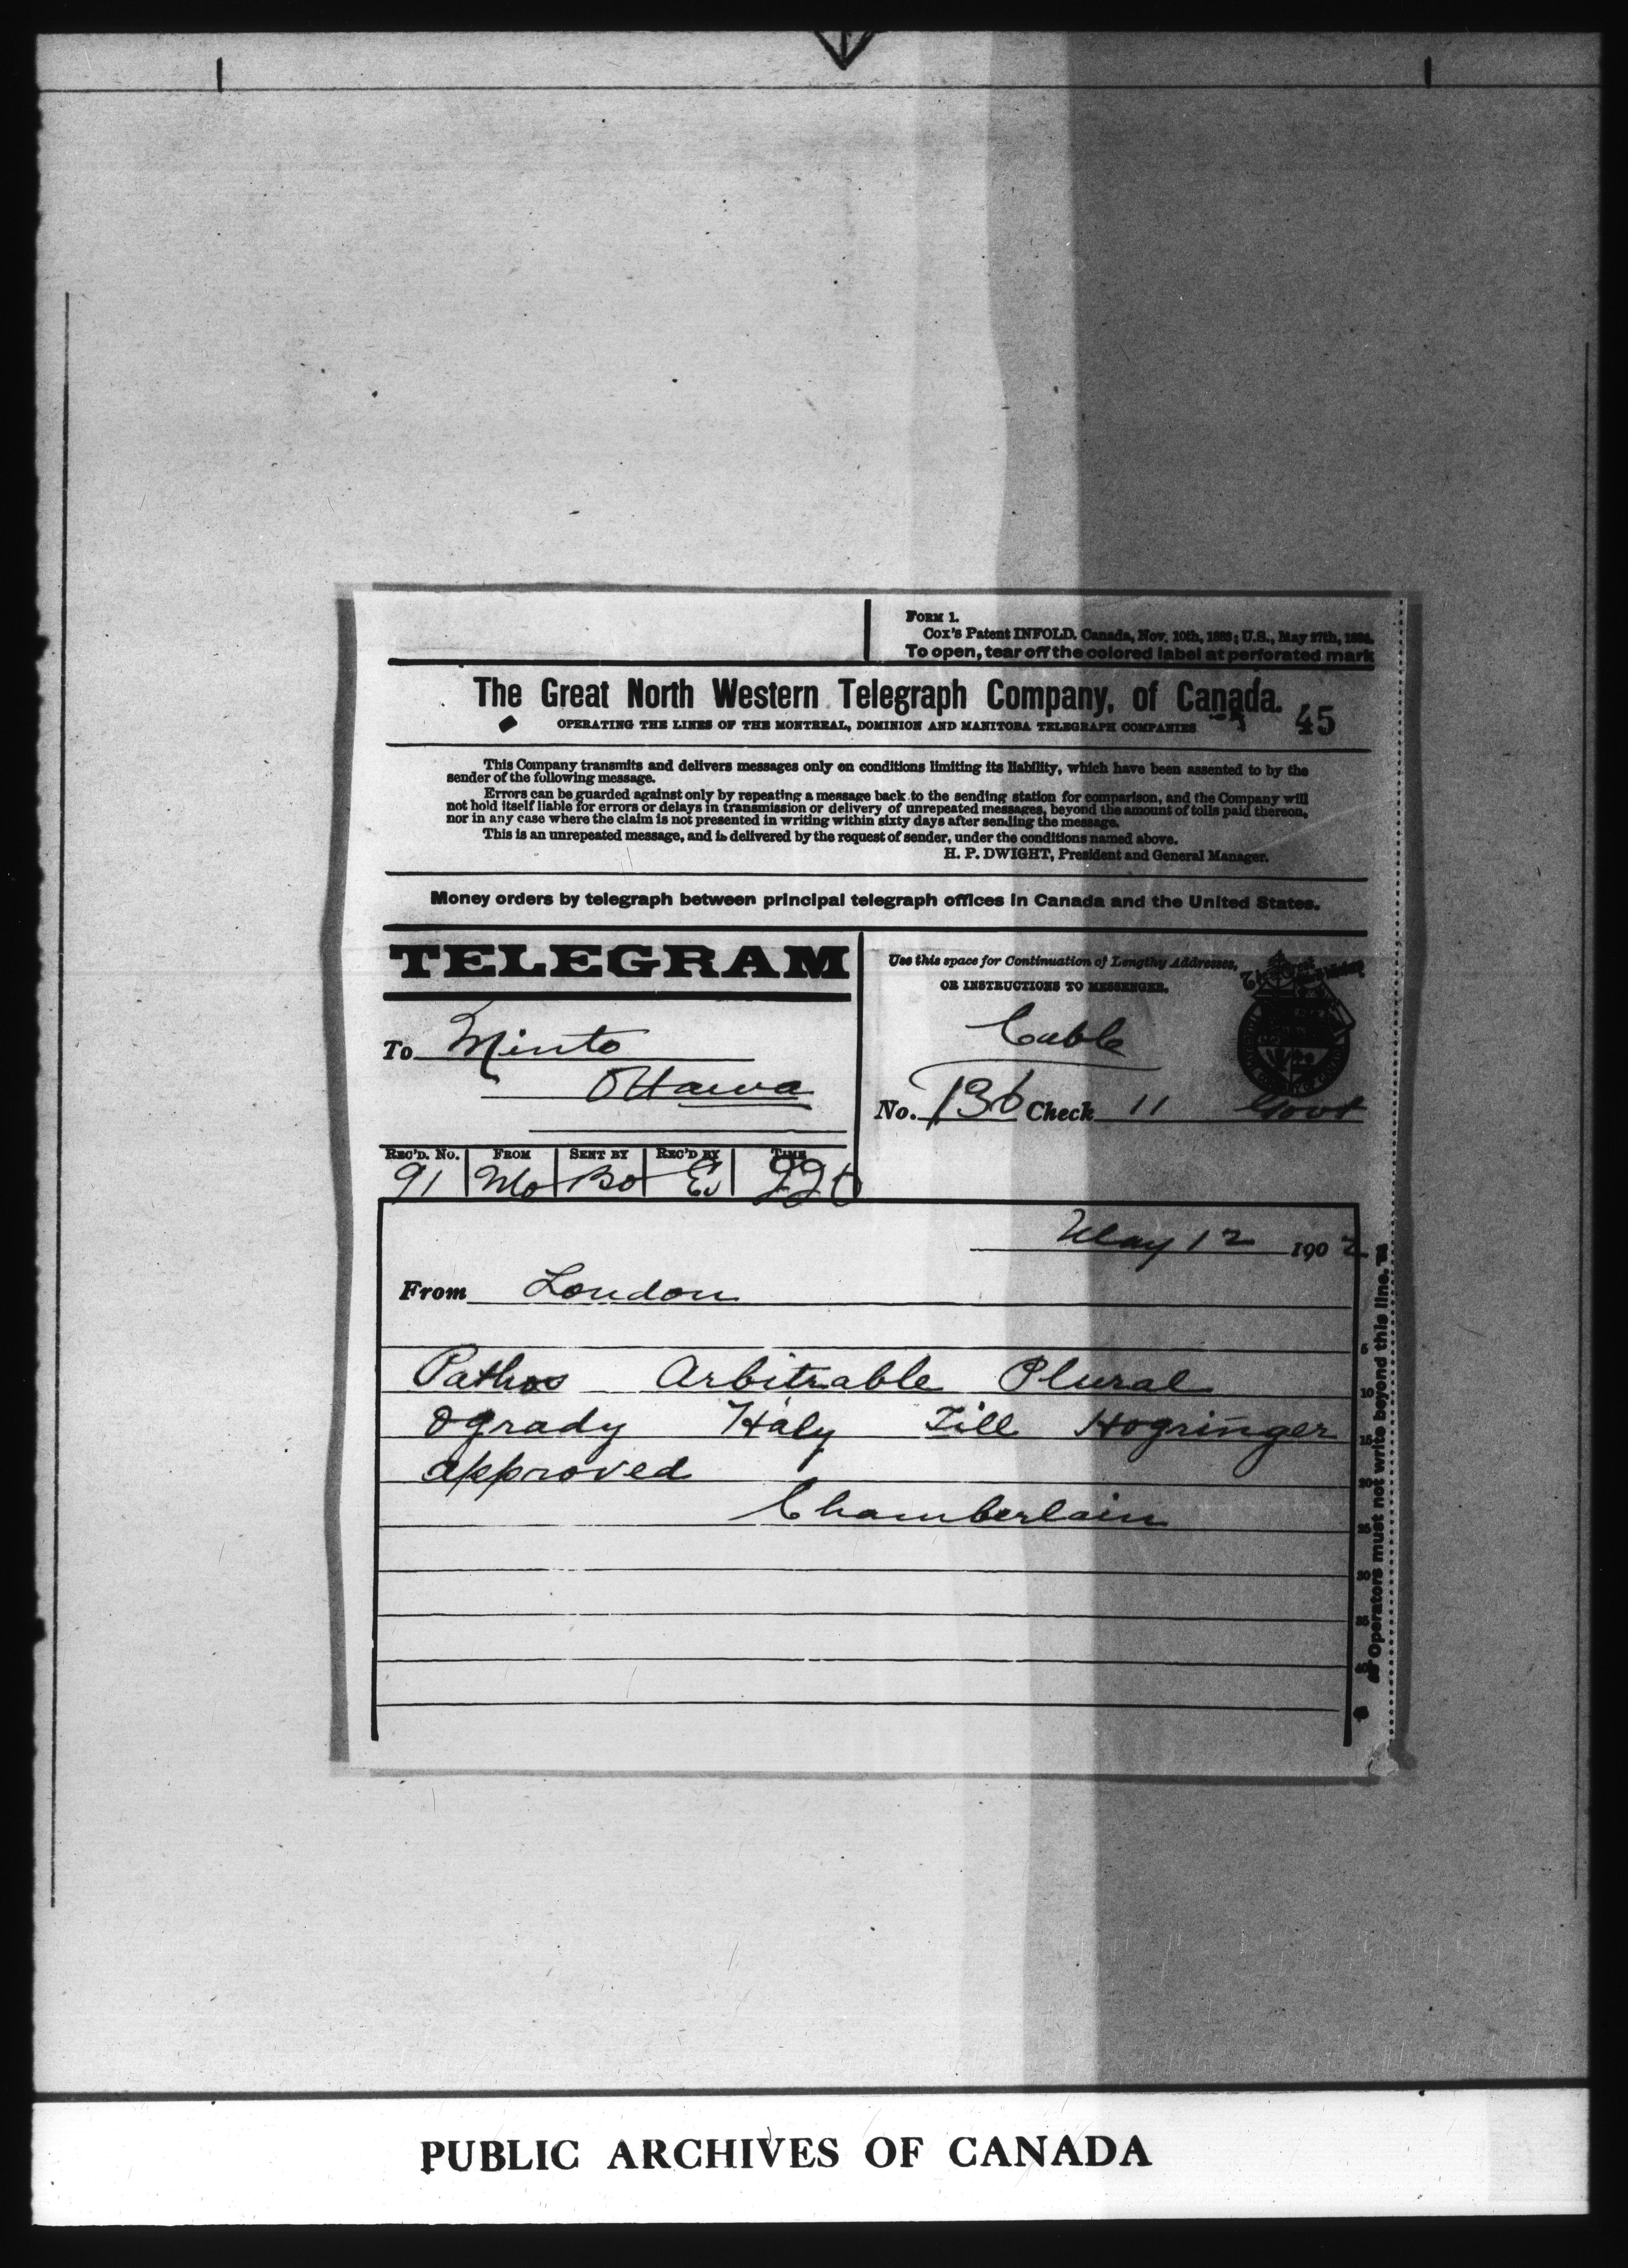 FORM 1.
Cox's Patent INFOLD. Canada, Nov. 10th, 1883; U.S., May 27th, 1884.
To open, tear off the colored label at perforated mark
The Great North Western Telegraph Company, of Canada.
OPERATING THE LINES OF THE MONTREAL, DOMINION AND MANITOBA TELEGRAPH COMPANIES
45
This Company transmits and delivers messages only on conditions limiting its liability, which have been assented to by the
sender of the following message.
Errors can be guarded against only by repeating a message back to the sending station for comparison, and the Company will
not hold itself liable for errors or delays in transmission or delivery of unrepeated messages, beyond the amount of tolls paid thereon,
nor in any case where the claim is not presented in writing within sixty days after sending the message.
This is an unrepeated message, and is delivered by the request of sender, under the conditions named above.
H. P. DWIGHT, President and General Manager.
Money orders by telegraph between principal telegraph offices in Canada and the United States.
TELEGRAM
Use this space for Continuation of Lengthy Addresses,
OR INSTRUCTIONS TO MESSENGER.
To Minto
Ottawa
Cable
No. 136 Check 11 Govt
REC'D. No. FROM SENT BY REC'D BY TIME
91 Mo Bo 220
May 12 1902
From London
Pathos Arbitrable Plural
Ogrady Haly Till Hogringer
approved
Chamberlain
5
10
15
20
25
30
35
40
45
Operators must not write beyond this line.
PUBLIC ARCHIVES OF CANADA